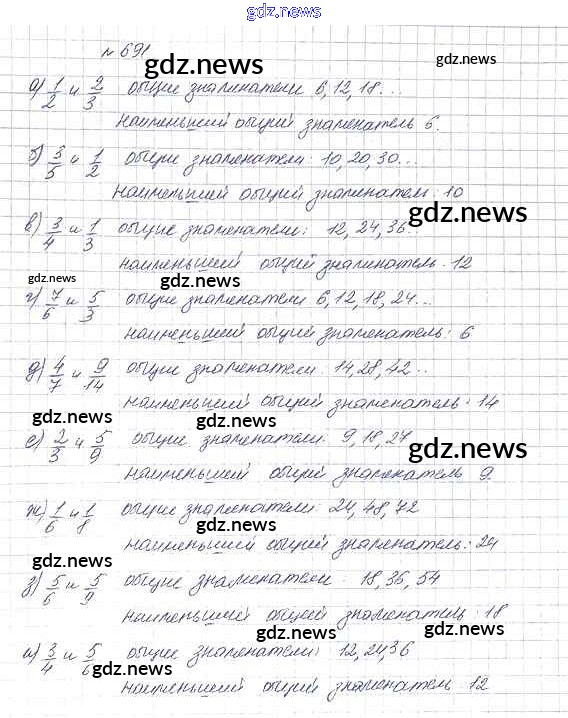 gdz.news
№ 691
gdz.news
а) 1/2 и 2/3 общие знаменатели 6, 12, 18...
наименьший общий знаменатель 6.
gdz.news
б) 3/5 и 1/2 общие знаменатели: 10, 20, 30...
наименьший общий знаменатель: 10
gdz.news
в) 3/4 и 1/3 общие знаменатели: 12, 24, 36..
наименьший общий знаменатель. 12
gdz.news
gdz.news
г) 7/6 и 5/3 общие знаменатели 6, 12, 18, 24...
наименьший общий знаменатель: 6
gdz.news
д) 4/7 и 9/14 общие знаменатели. 14, 28, 42..
наименьший общий знаменатель: 14
gdz.news
gdz.news
е) 2/3 и 5/9 общие знаменатели: 9, 18, 27
gdz.news
наименьший общий знаменатель 9.
ж) 1/6 и 1/8 общие знаменатели: 24, 48, 72
gdz.news
наименьший общий знаменатель: 24
gdz.news
gdz.news
з) 5/6 и 5/9 общие знаменатели: 18, 36, 54
наименьший общий знаменатель: 18
gdz.news
gdz.news
и) 3/4 и 5/6 общие знаменатели: 12, 24, 36
gdz.news
наименьший общий знаменатель 12